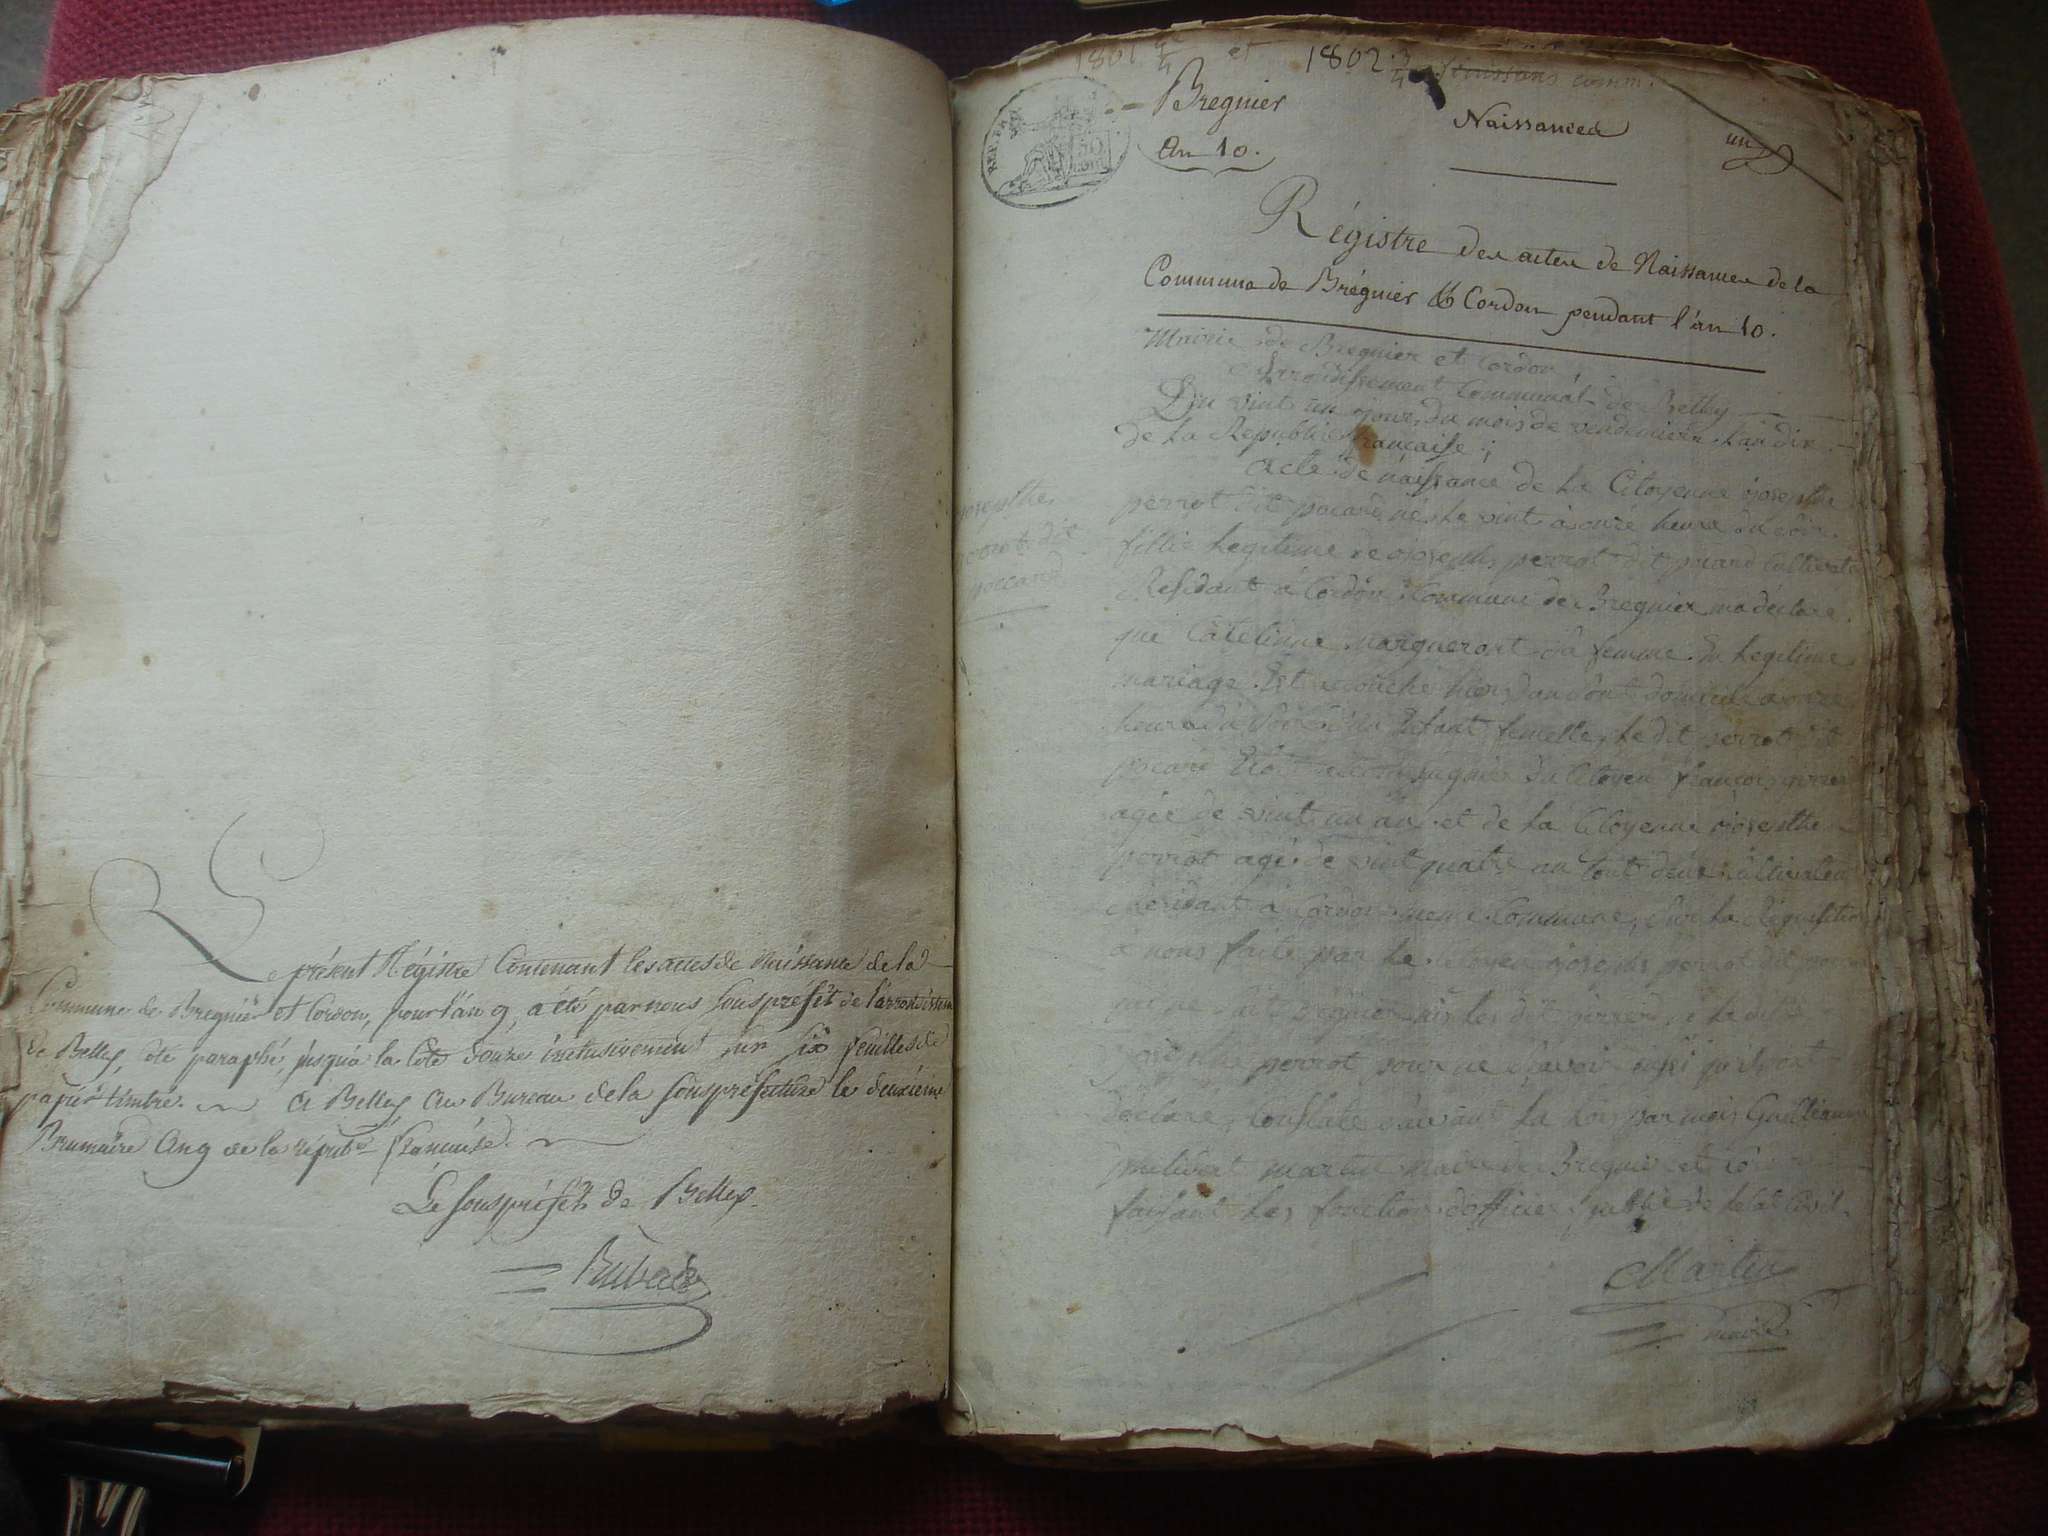 Le présent Régistre Contenant les actes de Naissance de la
Commune de Bregnier et Cordon, pour l'an 9, a été par nous Sous préfét de l'arrondissem
de Belley, été paraphé, jusqu'a la Cote douze inclusivement sur six feuilles de
papier timbré. A Belley Au Bureau de la Souspréfecture le deuxième
Brumaire An 9 de la répub française.
Le Sous préfét de Belley.
1801 1/4 et 1802 3/4
REP. FRA
50 CENT
Bregnier
An 10.
Naissances
un
Régistre des actes de Naissances de la
Commune de Brégnier & Cordon pendant l'an 10.
Mairie de Bregnier et Cordon
Arrondissement Communal de Belley
Du vint un jour du mois de vendemiere l'an dix
de La Republie française;
josepthe
perrot dit
poccard
Acte de naissance de La Citoyenne josepthe
perrot dit pocard né Le vint à onze heure du soir
fillie Legitime de joseph perrot dit pocard Cultivate
Residant a Cordon Commune de Bregnier ma déclare
que Catelinne margueront sa femme en Legitime
mariage Est acouche hier dan son domicile a onze
heure du Soir d'un Enfant femelle, Le dit perrot dit
pocard du Citoyen françois
agée de vint un an et de La Citoyenne josepthe
perrot agé de vint quatre an tout deux cultivateu
residant a Cordon meme Commune, Sur La Requisition
a nous faite par Le Citoyen joseph perrot dit
josepthe perrot pour ne Savoir ainsi qu'il ont
declare, Constate suivant La Loy par moi Guilleaume
martin maire de Bregnier et
faisant Les fonction d'officier public de Letat Civil.
Martin
maire